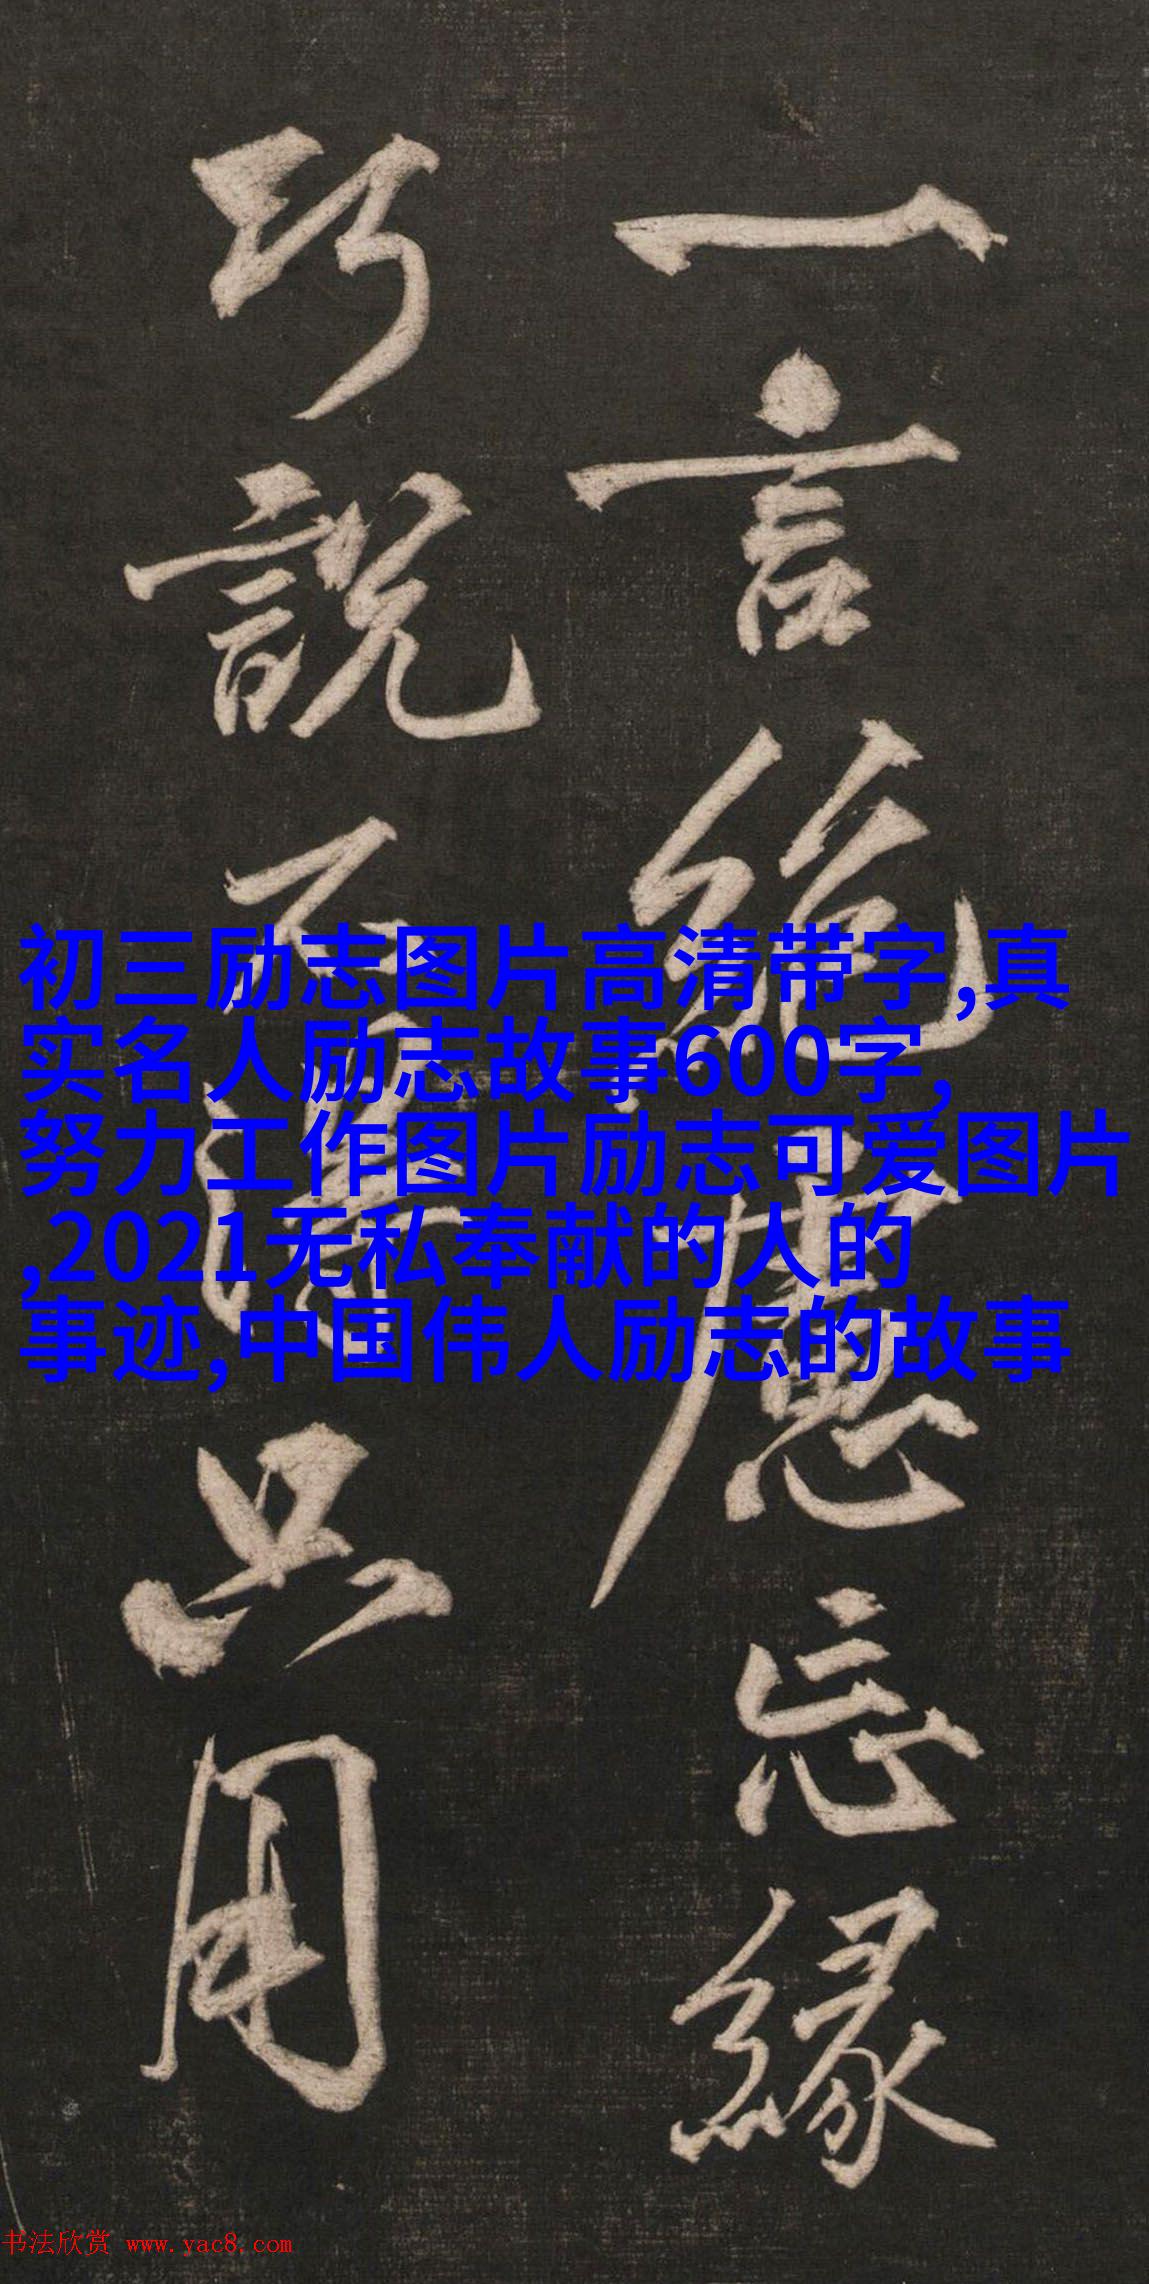 一言絶慮忘緣
巧說不得只用
初三励志图片高清带字,真
实名人励志故事600字,
努力工作图片励志可爱图片
,2021无私奉献的人的
事迹,中国伟人励志的故事
书法欣赏 www.yac8.com